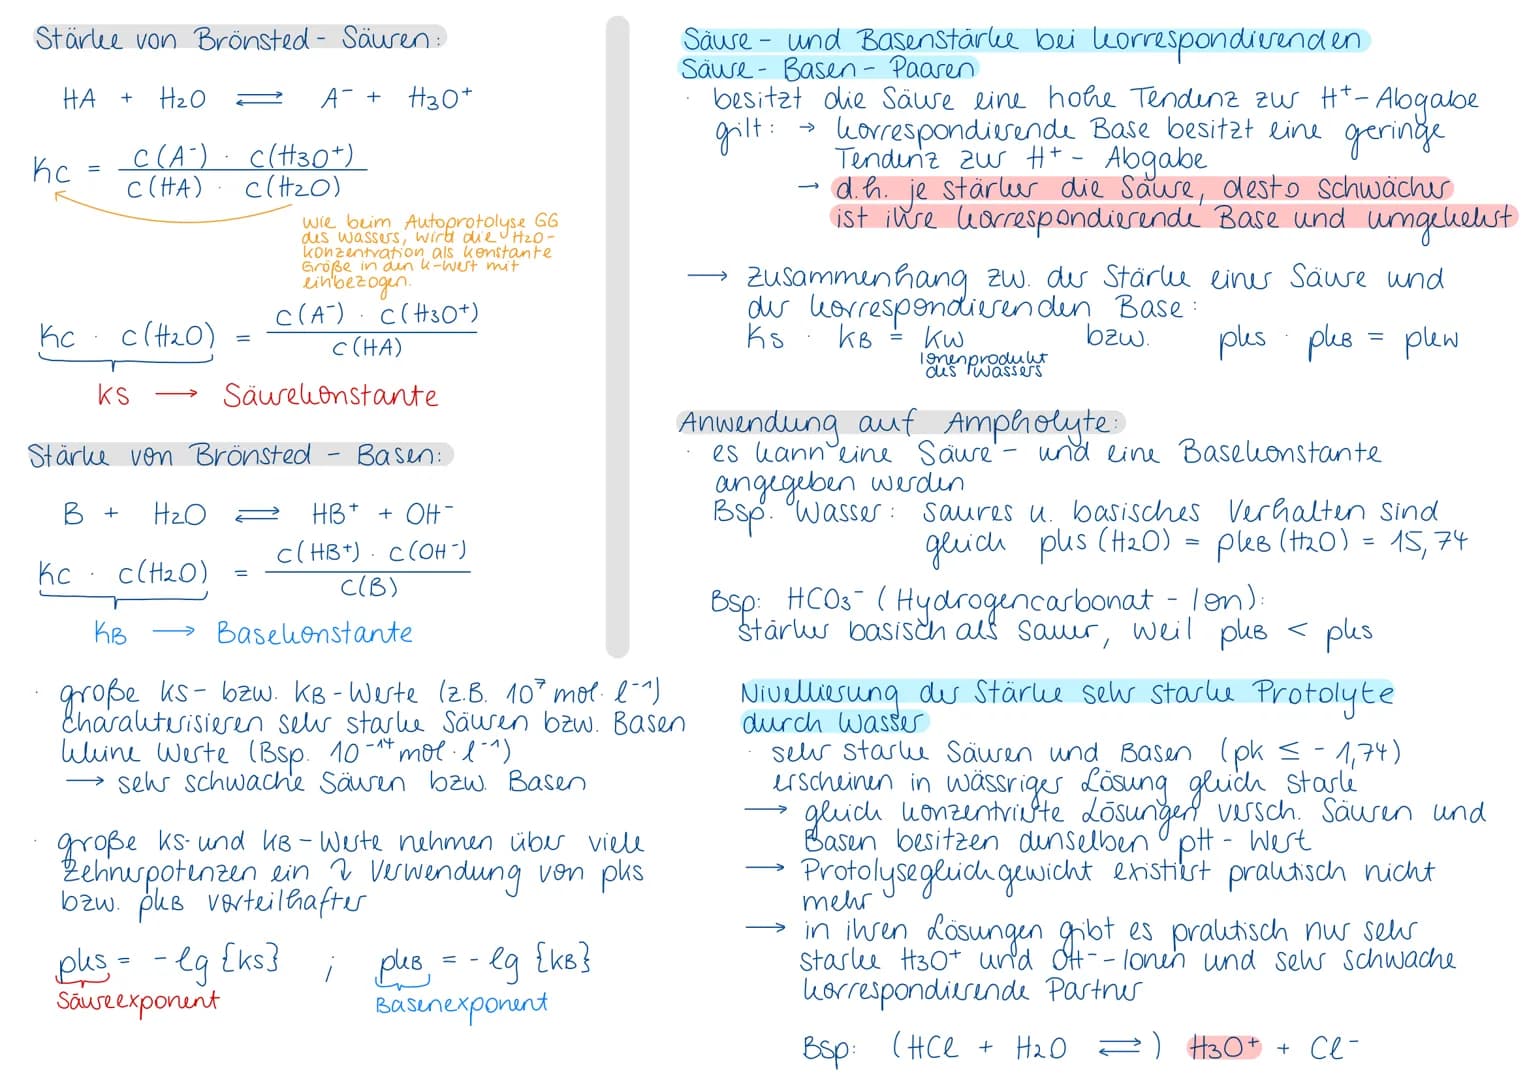 Stärke von Brönsted - Säuren:
HA + H₂O ⇌ A⁻ + H₃O⁺
Kc = c(A⁻) · c(H₃O⁺) / c(HA) · c(H₂O)
wie beim Autoprotolyse GG
des Wassers, wird die H₂O-
Konzentration als konstante
Größe in den K-Wert mit
einbezogen.
Kc · c(H₂O) = c(A⁻) · c(H₃O⁺) / c(HA)
KS → Säurekonstante
Stärke von Brönsted - Basen:
B + H₂O ⇌ HB⁺ + OH⁻
Kc · c(H₂O) = c(HB⁺) · c(OH⁻) / c(B)
KB → Basekonstante
· große KS- bzw. KB-Werte (z.B. 10⁷ mol · l⁻¹)
charakterisieren sehr starke Säuren bzw. Basen
kleine Werte (Bsp. 10⁻¹⁴ mol · l⁻¹)
→ sehr schwache Säuren bzw. Basen
· große KS- und KB-Werte nehmen über viele
Zehnerpotenzen ein Verwendung von pKS
bzw. pKB vorteilhafter
pKS = - lg {KS} ; pKB = - lg {KB}
Säureexponent Basenexponent
Säure- und Basenstärke bei korrespondierenden
Säure-Basen-Paaren
· besitzt die Säure eine hohe Tendenz zur H⁺-Abgabe
gilt: → korrespondierende Base besitzt eine geringe
Tendenz zur H⁺- Abgabe
→ d.h. je stärker die Säure, desto schwächer
ist ihre korrespondierende Base und umgekehrt
→ Zusammenhang zw. der Stärke einer Säure und
der korrespondierenden Base:
KS · KB = KW bzw. pKS · pKB = pKW
Ionenprodukt
des Wassers
Anwendung auf Ampholyte:
· es kann eine Säure- und eine Basekonstante
angegeben werden
Bsp. Wasser: saures u. basisches Verhalten sind
gleich pKS (H₂O) = pKB (H₂O) = 15,74
Bsp: HCO₃⁻ (Hydrogencarbonat-Ion):
stärker basisch als sauer, weil pKB < pKS
Nivellierung der Stärke sehr starke Protolyte
durch Wasser
· sehr starke Säuren und Basen (pK ≤ -1,74)
erscheinen in wässriger Lösung gleich stark
→ gleich konzentrierte Lösungen versch. Säuren und
Basen besitzen denselben pH-Wert
→ Protolysegleichgewicht existiert praktisch nicht
mehr
→ in ihren Lösungen gibt es praktisch nur sehr
starke H₃O⁺ und OH⁻-Ionen und sehr schwache
korrespondierende Partner
Bsp: (HCl + H₂O ⇌) H₃O⁺ + Cl⁻